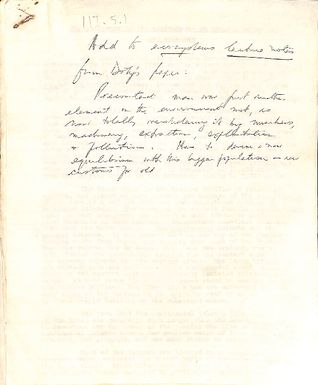 117.5.1
Add to ecosystems lecture notes
from Doty's paper:
Precontact man was just another
element in the environment but, is
now totally revolutionizing it by numbers,
machinery, extraction, exploitation
& pollution. How to devise a new
equilibrium with this bigger population
customs for old